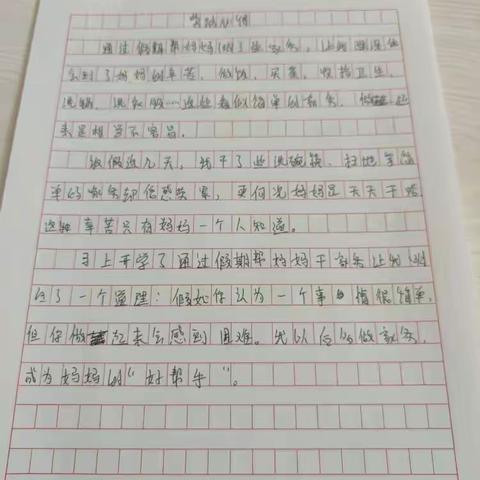 劳动心得
通过假期帮妈妈做了些家务,让我深深体
会到了妈妈的辛苦。做饭,买菜,收拾卫生,
洗锅,洗衣服……这些看似简单的家务,做起
来是相当不容易。
放假这几天,我干了些洗碗筷,扫地等简
单的家务却倍感劳累,更何况妈妈是天天干活
这种辛苦只有妈妈一个人知道。
马上开学了通过假期帮妈妈干家务让我
了一个道理:假如你认为一个事情很简单,
但你做起来会感到困难。我以后多做家务,
成为妈妈的“好帮手”。